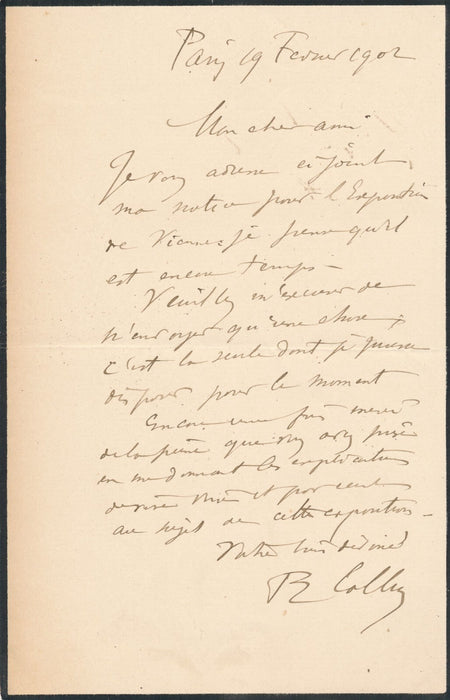 Paris 19 Fevrier 1902
Mon cher ami
Je vous adresse ci joint
ma notice pour l'Exposition
de Vienne; je pense qu'il
est encore temps –
Veuillez m'excuser de
n'envoyer qu'une chose;
c'est la seule dont je puisse
disposer pour le moment
Encore une fois merci
de la peine que vous avez prise
en me donnant les explications
de vive voix et par
au sujet de cette exposition –
Votre bien dévoué
R Collin